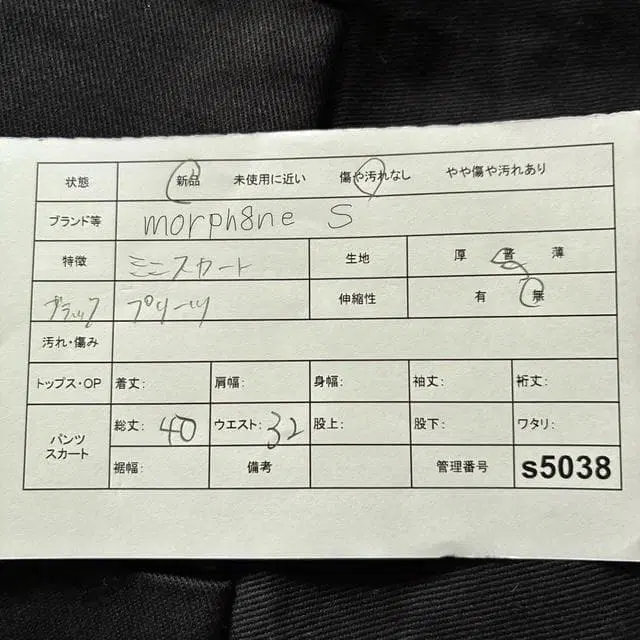 状態 新品 未使用に近い 傷や汚れなし やや傷や汚れあり
ブランド等 morph8ne S
特徴 ミニスカート 生地 厚 普 薄
ブラック プリーツ 伸縮性 有 無
汚れ・傷み
トップス・OP 着丈: 肩幅: 身幅: 袖丈: 裄丈:
パンツ スカート 総丈: 40 ウエスト: 32 股上: 股下: ワタリ:
裾幅: 備考 管理番号 s5038